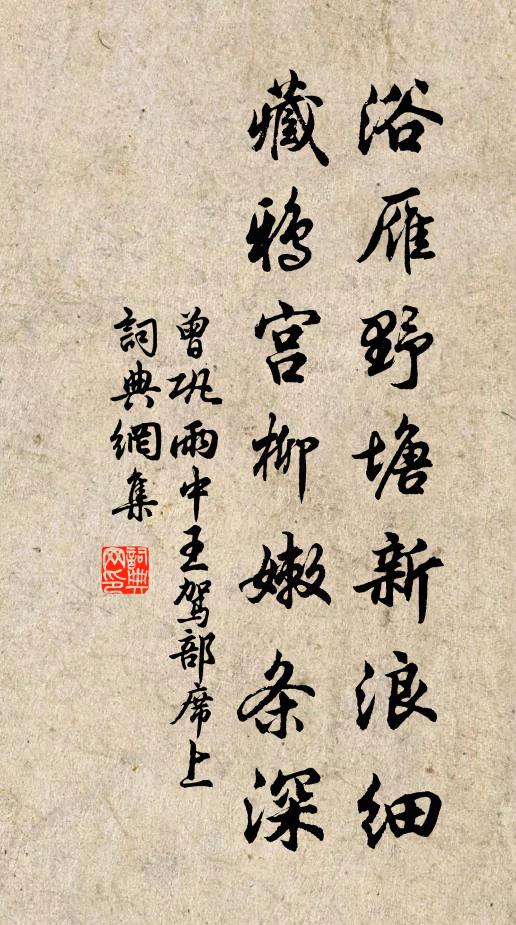 浴雁野塘新浪细
藏鸦宫柳嫩条深
曾巩雨中王驾部席上
词典网集
词典网印